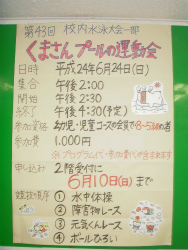 第43回 校内水泳大会一部
くまさんプールの運動会
日時 平成24年6月24日(日)
集合 午後2:00
開始 午後2:30
終了 午後4:30(予定)
参加資格 幼児・児童コースの会員で8~5級の者
参加費 1,000円
※プログラム代・参加賞代が含まれます
申し込み 2階受付にて
6月10日(日)まで
競技順序 ① 水中体操
② 障害物レース
③ 元気くんレース
④ ボールひろい